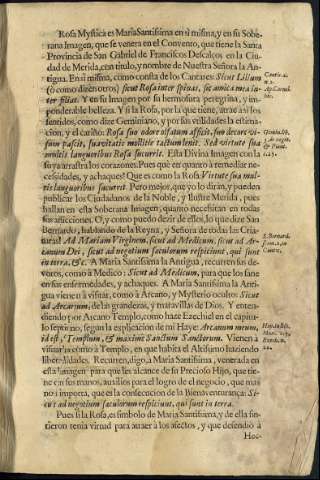 Rosa Mystica es Maria Santissima en si misma, y en su Sobe-
rana Imagen, que se venera en el Convento, que tiene la Santa
Provincia de San Gabriel de Franciscos Descalços en la Ciu-
dad de Merida, con titulo, y nombre de Nuestra Señora la An-
tigua. En si misma, como consta de los Cantares: Sicut Lilium
(ò como dizen otros) sicut Rosa inter spinas, sic amica mea in-
ter filias. Y en su Imagen por su hermosura peregrina, y im-
ponderable belleza. Y si la Rosa, por lo que tiene, atrae assi los
sentidos, como dize Geminiano, y por sus utilidades la estima-
cion, y el cariño: Rosa suo odore olfatum afficit, suo decore vi-
sum pascit, suavitatis mollitie tactum lenit. Sed virtute sua
multis languoribus Rosa succurit. Esta Divina Imagen con la
suya arrastra los coraçones. Pues què en quanto à remediar ne-
cessidades, y achaques! Que es como la Rosa: Virtute sua mul-
tis languoribus succuret. Pero mejor, que yo lo diràn, y pueden
publicar los Ciudadanos de la Noble, y Ilustre Merida, pues
hallan en esta Soberana Imagen, quanto necessitan en todas
sus aflicciones. O, y como puedo dezir de ellos, lo que dize San
Bernardo, hablando de la Reyna, y Señora de todas las Cria-
turas! Ad Mariam Virginem, sicut ad Medicum, sicut ad Ar-
canum Dei, sicut ad negotium sæculorum respiciunt, qui sunt
in terra, &c. A Maria Santissima la Antigua, recurren sus de-
votos, como à Medico: Sicut ad Medicum, para que los sane
en sus enfermedades, y achaques. A Maria Santissima la Anti-
gua vienen à visitar, como à Arcano, y Mysterio oculto: Sicut
ad Arcanum, de las grandezas, y maravillas de Dios. Y enten-
diendo por Arcano Templo, como haze Ezechiel en el capitu-
lo septimo, segun la explicacion de mi Haye: Arcanum meum,
id est, Templum, & maximè Sanctum Sanctorum. Vienen à
visitarla como à Templo, en que habita el Altissimo haziendo
liberalidades. Recurren, digo, à Maria Santissima, venerada en
esta Imagen para que les alcance de su Precioso Hijo, que tie-
ne en sus manos, auxilios para el logro de el negocio, que mas
nos importa, que es la consecucion de la Bienaventurança: Si-
cut ad negotium sæculorum respiciunt, qui sunt in terra.
Pues si la Rosa, es simbolo de Maria Santissima, y de ella sin-
tieron tenia virtud para atraer à los afectos, y que defendiò à
Hoc-